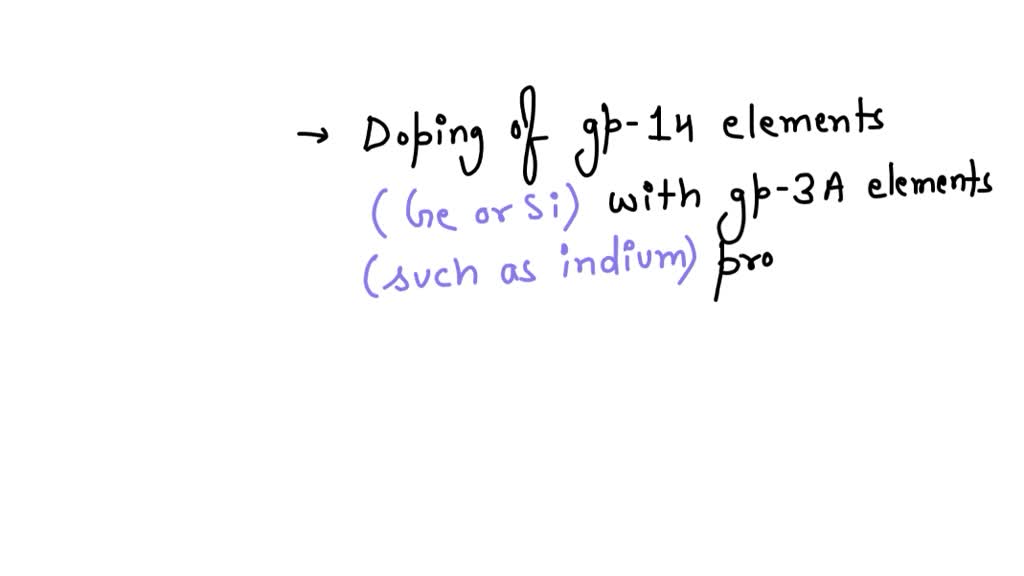 → Doping of gp-14 elements
(Ge or Si) with gp-3A elements
(such as indium) pro